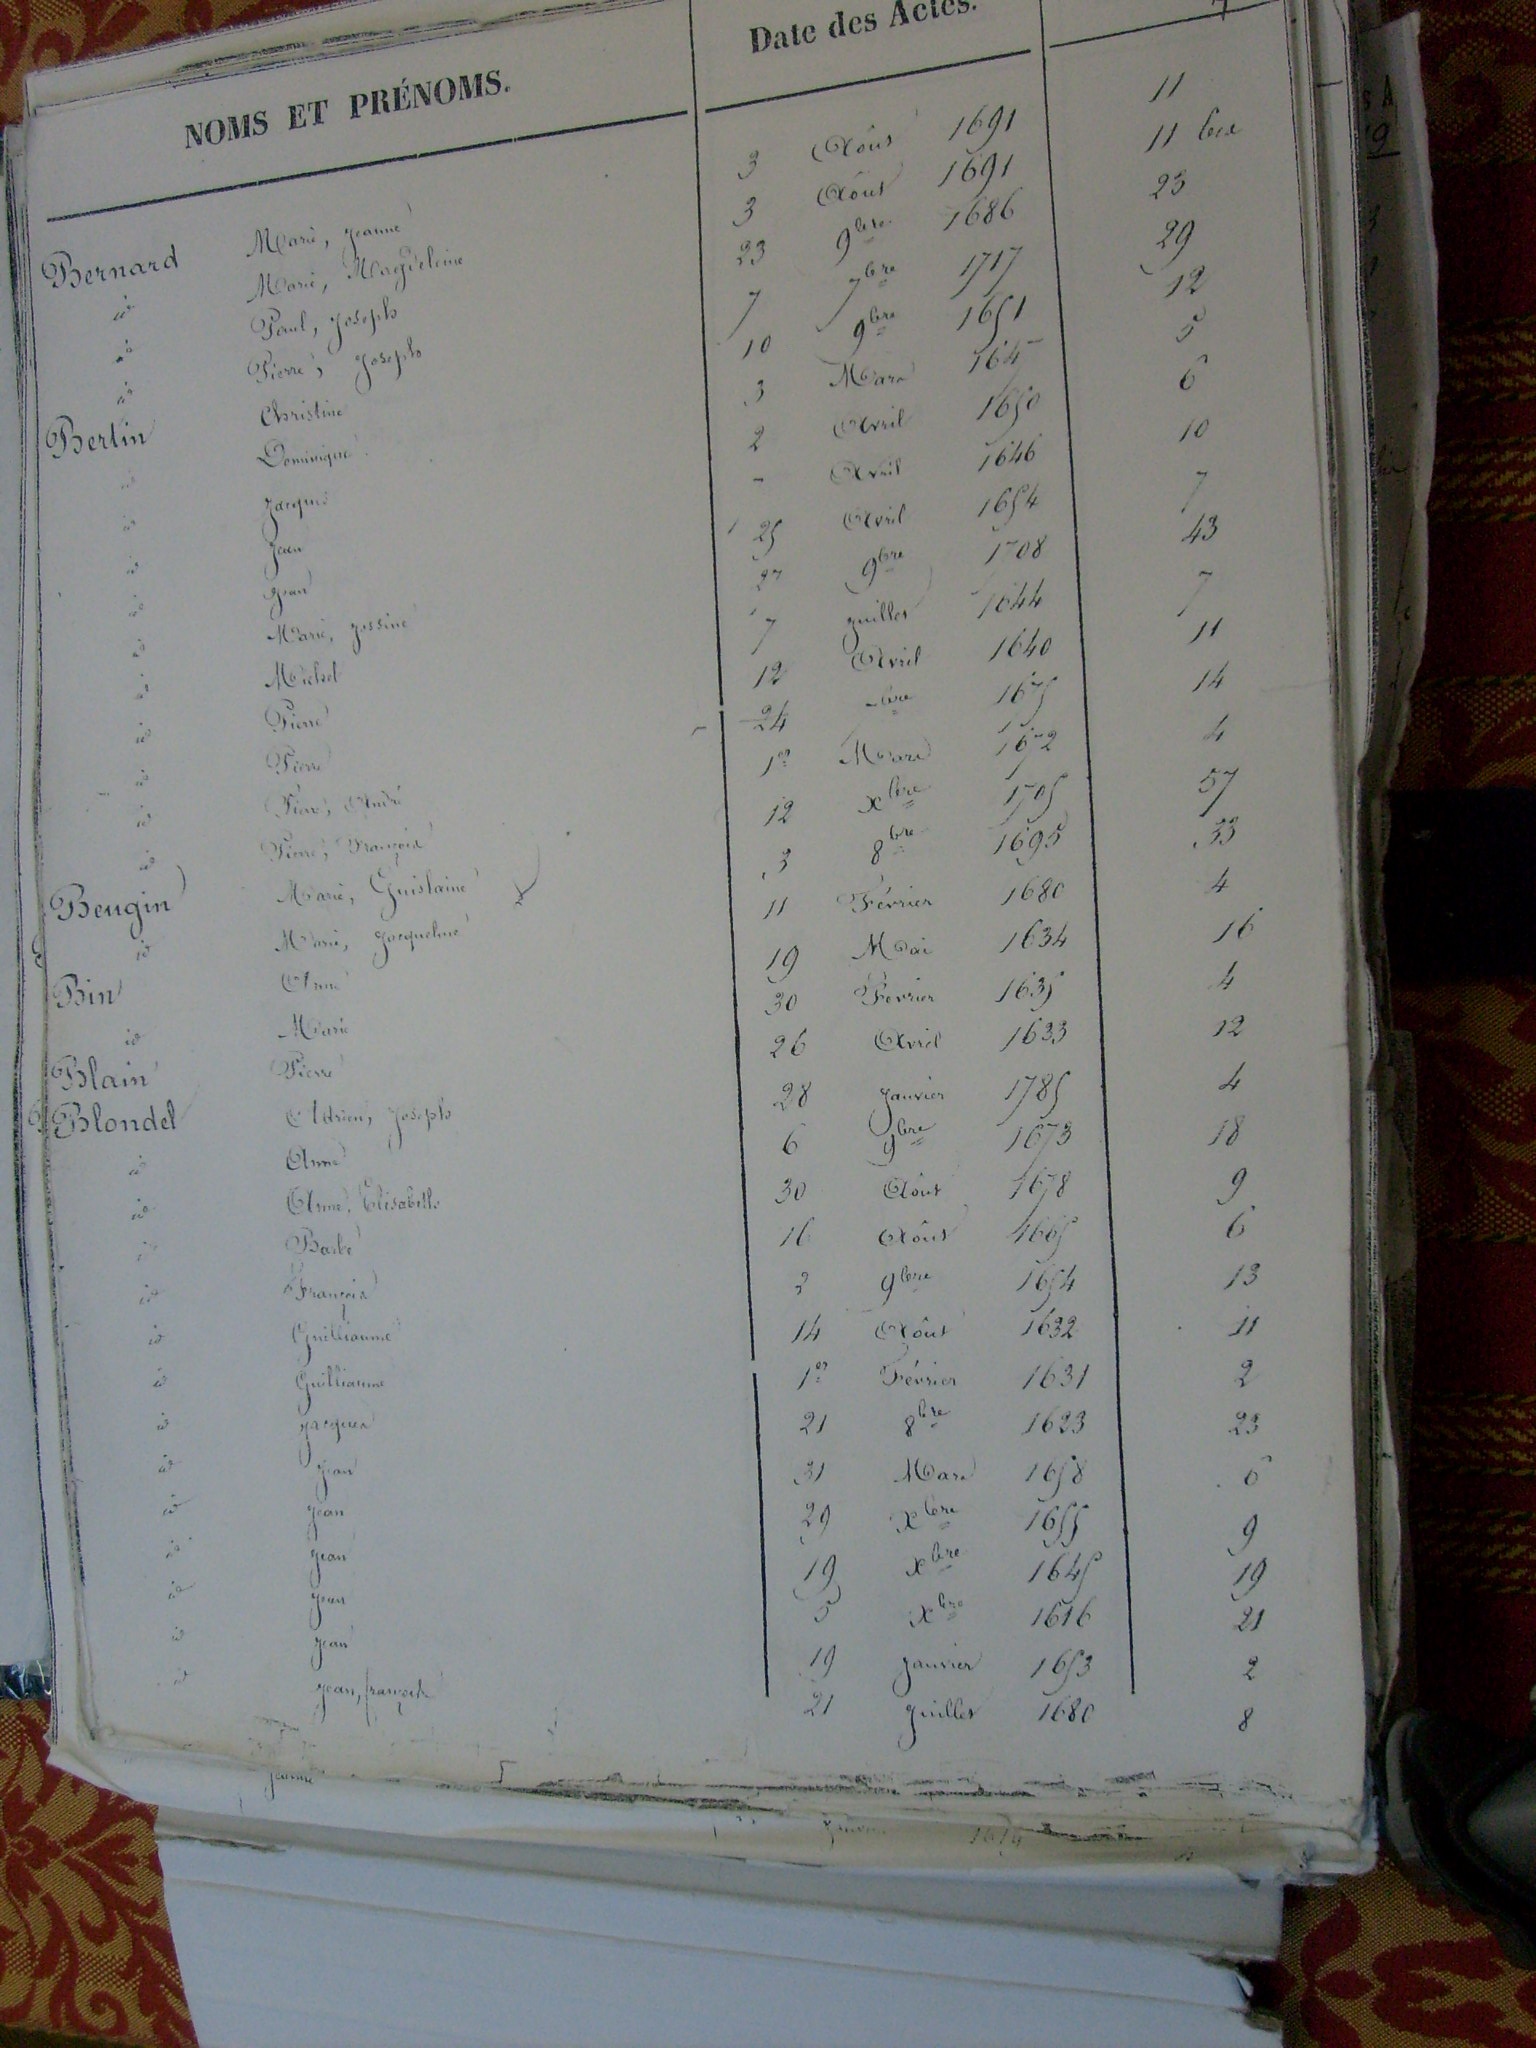 NOMS ET PRÉNOMS. Date des Actes.
Bernard Marie, Jeanne 3 Août 1691 11
id Marie, Magdeleine 3 Août 1691 11 bis
id Paul, Joseph 23 9bre 1686 23
id Pierre, Joseph 7 7bre 1717 29
Bertin Christine 10 9bre 1651 12
id Dominique 3 Mars 5
id Jacques 2 Avril 1650 6
id Jean Avril 1646 10
id Jean 25 Avril 1654 7
id Marie, Jossine 27 9bre 1708 43
id Michel 7 juillet 1644 7
id Pierre 12 Avril 1640 11
id Pierre 24 1675 14
id Pierre, André 1er Mars 1672 4
id Pierre, François 12 Xbre 1705 57
Beugin Marie, Guislaine 3 8bre 1695 33
id Marie, Jacqueline 11 Février 1680 4
Bin Anne 19 Mai 1634 16
id Marie 30 Fevrier 1635 4
Blain Pierre 26 Avril 1633 12
Blondel Adrien, Joseph 28 janvier 1785 4
id Anne 6 9bre 1673 18
id Anne, Elisabeth 30 Août 1678 9
id Barbe 16 Août 1665 6
id François 2 9bre 1654 13
id Guilliaume 14 Août 1632 11
id Guilliaume 1er Février 1631 2
id Jacques 21 8bre 1623 23
id Jean 31 Mars 1658 6
id Jean 29 Xbre 1655 9
id Jean 19 Xbre 1645 19
id Jean 5 Xbre 1616 21
id Jean 19 janvier 1653 2
id Jean, françois 21 juillet 1680 8